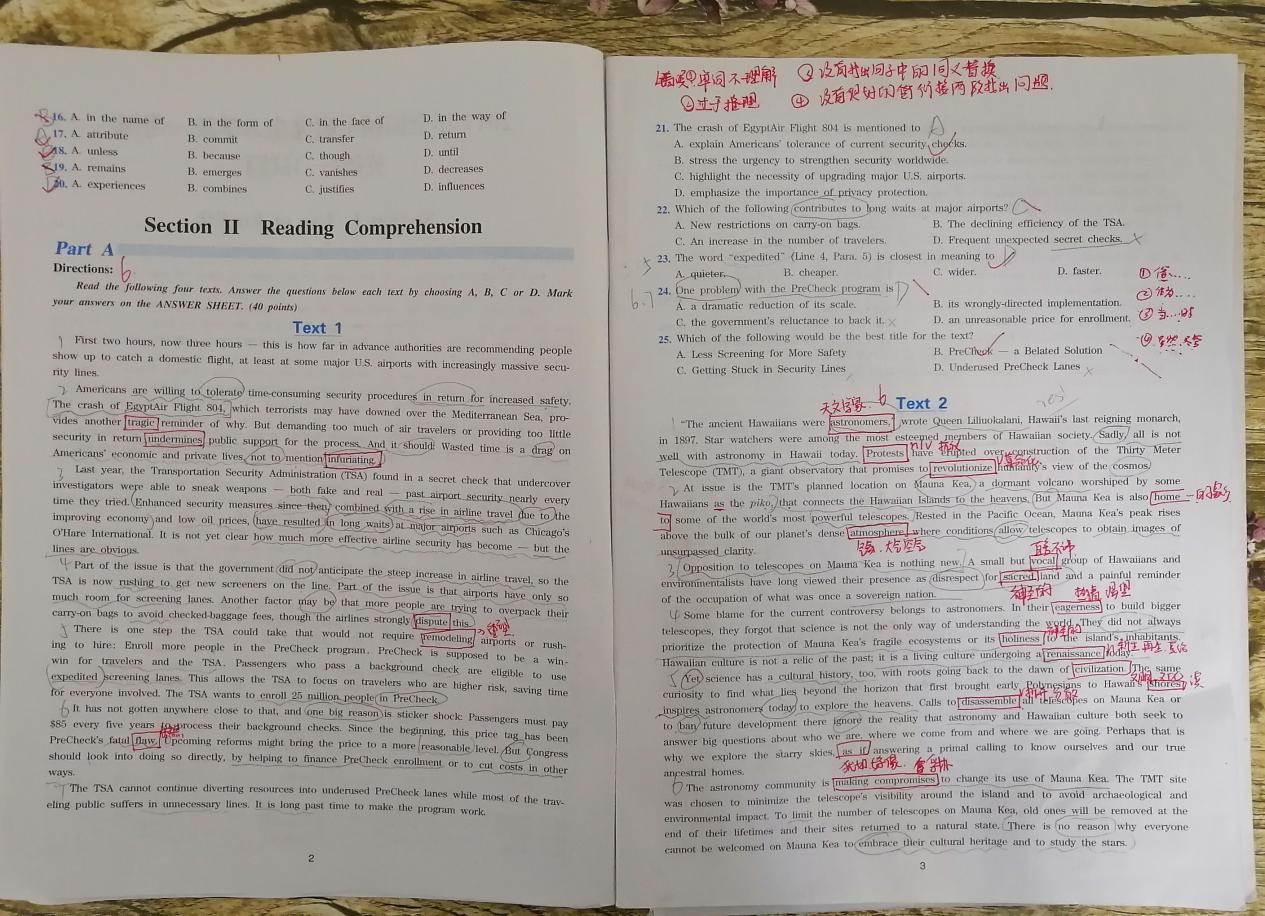 16. A. in the name of B. in the form of C. in the face of D. in the way of
17. A. attribute B. commit C. transfer D. return
18. A. unless B. because C. though D. until
19. A. remains B. emerges C. vanishes D. decreases
20. A. experiences B. combines C. justifies D. influences
Section II Reading Comprehension
Part A
Directions: 6
Read the following four texts. Answer the questions below each text by choosing A, B, C or D. Mark
your answers on the ANSWER SHEET. (40 points)
Text 1
1 First two hours, now three hours — this is how far in advance authorities are recommending people
show up to catch a domestic flight, at least at some major U.S. airports with increasingly massive secu-
rity lines.
2 Americans are willing to tolerate time-consuming security procedures in return for increased safety.
The crash of EgyptAir Flight 804, which terrorists may have downed over the Mediterranean Sea, pro-
vides another tragic reminder of why. But demanding too much of air travelers or providing too little
security in return undermines public support for the process. And it should: Wasted time is a drag on
Americans' economic and private lives, not to mention infuriating.
3 Last year, the Transportation Security Administration (TSA) found in a secret check that undercover
investigators were able to sneak weapons — both fake and real — past airport security nearly every
time they tried. Enhanced security measures since then, combined with a rise in airline travel due to the
improving economy and low oil prices, have resulted in long waits at major airports such as Chicago's
O'Hare International. It is not yet clear how much more effective airline security has become — but the
lines are obvious.
4 Part of the issue is that the government did not anticipate the steep increase in airline travel, so the
TSA is now rushing to get new screeners on the line. Part of the issue is that airports have only so
much room for screening lanes. Another factor may be that more people are trying to overpack their
carry-on bags to avoid checked-baggage fees, though the airlines strongly dispute this.
5 There is one step the TSA could take that would not require remodeling airports or rush-
ing to hire: Enroll more people in the PreCheck program. PreCheck is supposed to be a win-
win for travelers and the TSA. Passengers who pass a background check are eligible to use
expedited screening lanes. This allows the TSA to focus on travelers who are higher risk, saving time
for everyone involved. The TSA wants to enroll 25 million people in PreCheck.
6 It has not gotten anywhere close to that, and one big reason is sticker shock: Passengers must pay
$85 every five years to process their background checks. Since the beginning, this price tag has been
PreCheck's fatal flaw. Upcoming reforms might bring the price to a more reasonable level. But Congress
should look into doing so directly, by helping to finance PreCheck enrollment or to cut costs in other
ways.
7 The TSA cannot continue diverting resources into underused PreCheck lanes while most of the trav-
eling public suffers in unnecessary lines. It is long past time to make the program work.
2
①单词不理解 ③没有找出句子中的同义替换
④
21. The crash of EgyptAir Flight 804 is mentioned to A
A. explain Americans' tolerance of current security checks.
B. stress the urgency to strengthen security worldwide.
C. highlight the necessity of upgrading major U.S. airports.
D. emphasize the importance of privacy protection.
22. Which of the following contributes to long waits at major airports? C
A. New restrictions on carry-on bags. B. The declining efficiency of the TSA.
C. An increase in the number of travelers. D. Frequent unexpected secret checks.
23. The word "expedited" (Line 4, Para. 5) is closest in meaning to D
A. quieter. B. cheaper. C. wider. D. faster.
24. One problem with the PreCheck program is D
A. a dramatic reduction of its scale. B. its wrongly-directed implementation.
C. the government's reluctance to back it. D. an unreasonable price for enrollment.
25. Which of the following would be the best title for the text?
A. Less Screening for More Safety B. PreCheck — a Belated Solution
C. Getting Stuck in Security Lines D. Underused PreCheck Lanes
Text 2
1 "The ancient Hawaiians were astronomers," wrote Queen Liliuokalani, Hawaii's last reigning monarch,
in 1897. Star watchers were among the most esteemed members of Hawaiian society. Sadly, all is not
well with astronomy in Hawaii today. Protests have erupted over construction of the Thirty Meter
Telescope (TMT), a giant observatory that promises to revolutionize humanity's view of the cosmos.
2 At issue is the TMT's planned location on Mauna Kea, a dormant volcano worshiped by some
Hawaiians as the piko, that connects the Hawaiian Islands to the heavens. But Mauna Kea is also home
to some of the world's most powerful telescopes. Rested in the Pacific Ocean, Mauna Kea's peak rises
above the bulk of our planet's dense atmosphere, where conditions allow telescopes to obtain images of
unsurpassed clarity.
3 Opposition to telescopes on Mauna Kea is nothing new. A small but vocal group of Hawaiians and
environmentalists have long viewed their presence as disrespect for sacred land and a painful reminder
of the occupation of what was once a sovereign nation.
4 Some blame for the current controversy belongs to astronomers. In their eagerness to build bigger
telescopes, they forgot that science is not the only way of understanding the world. They did not always
prioritize the protection of Mauna Kea's fragile ecosystems or its holiness to the island's inhabitants.
Hawaiian culture is not a relic of the past; it is a living culture undergoing a renaissance today.
5 Yet science has a cultural history, too, with roots going back to the dawn of civilization. The same
curiosity to find what lies beyond the horizon that first brought early Polynesians to Hawaii's shores
inspires astronomers today to explore the heavens. Calls to disassemble all telescopes on Mauna Kea or
to ban future development there ignore the reality that astronomy and Hawaiian culture both seek to
answer big questions about who we are, where we come from and where we are going. Perhaps that is
why we explore the starry skies, as if answering a primal calling to know ourselves and our true
ancestral homes.
6 The astronomy community is making compromises to change its use of Mauna Kea. The TMT site
was chosen to minimize the telescope's visibility around the island and to avoid archaeological and
environmental impact. To limit the number of telescopes on Mauna Kea, old ones will be removed at the
end of their lifetimes and their sites returned to a natural state. There is no reason why everyone
cannot be welcomed on Mauna Kea to embrace their cultural heritage and to study the stars.
3